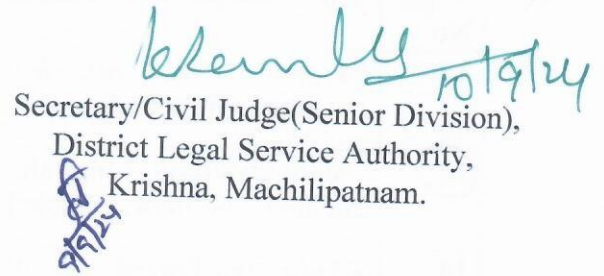 10/9/24
Secretary/Civil Judge(Senior Division),
District Legal Service Authority,
Krishna, Machilipatnam.
9/9/24